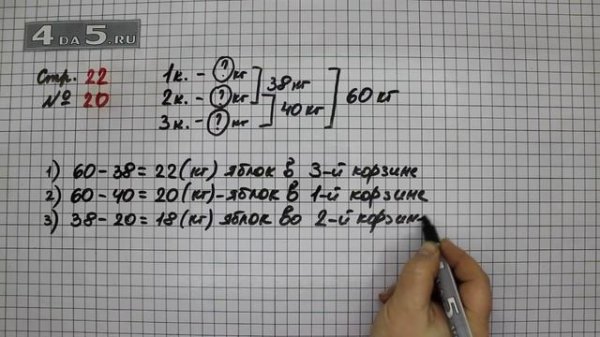 4DA5.RU
Стр. 22
№ 20
1к. - ? кг
2к. - ? кг
3к. - ? кг
38 кг
40 кг
60 кг
1) 60 - 38 = 22 (кг) яблок в 3-й корзине
2) 60 - 40 = 20 (кг) - яблок в 1-й корзине
3) 38 - 20 = 18 (кг) яблок во 2-й корзин
5